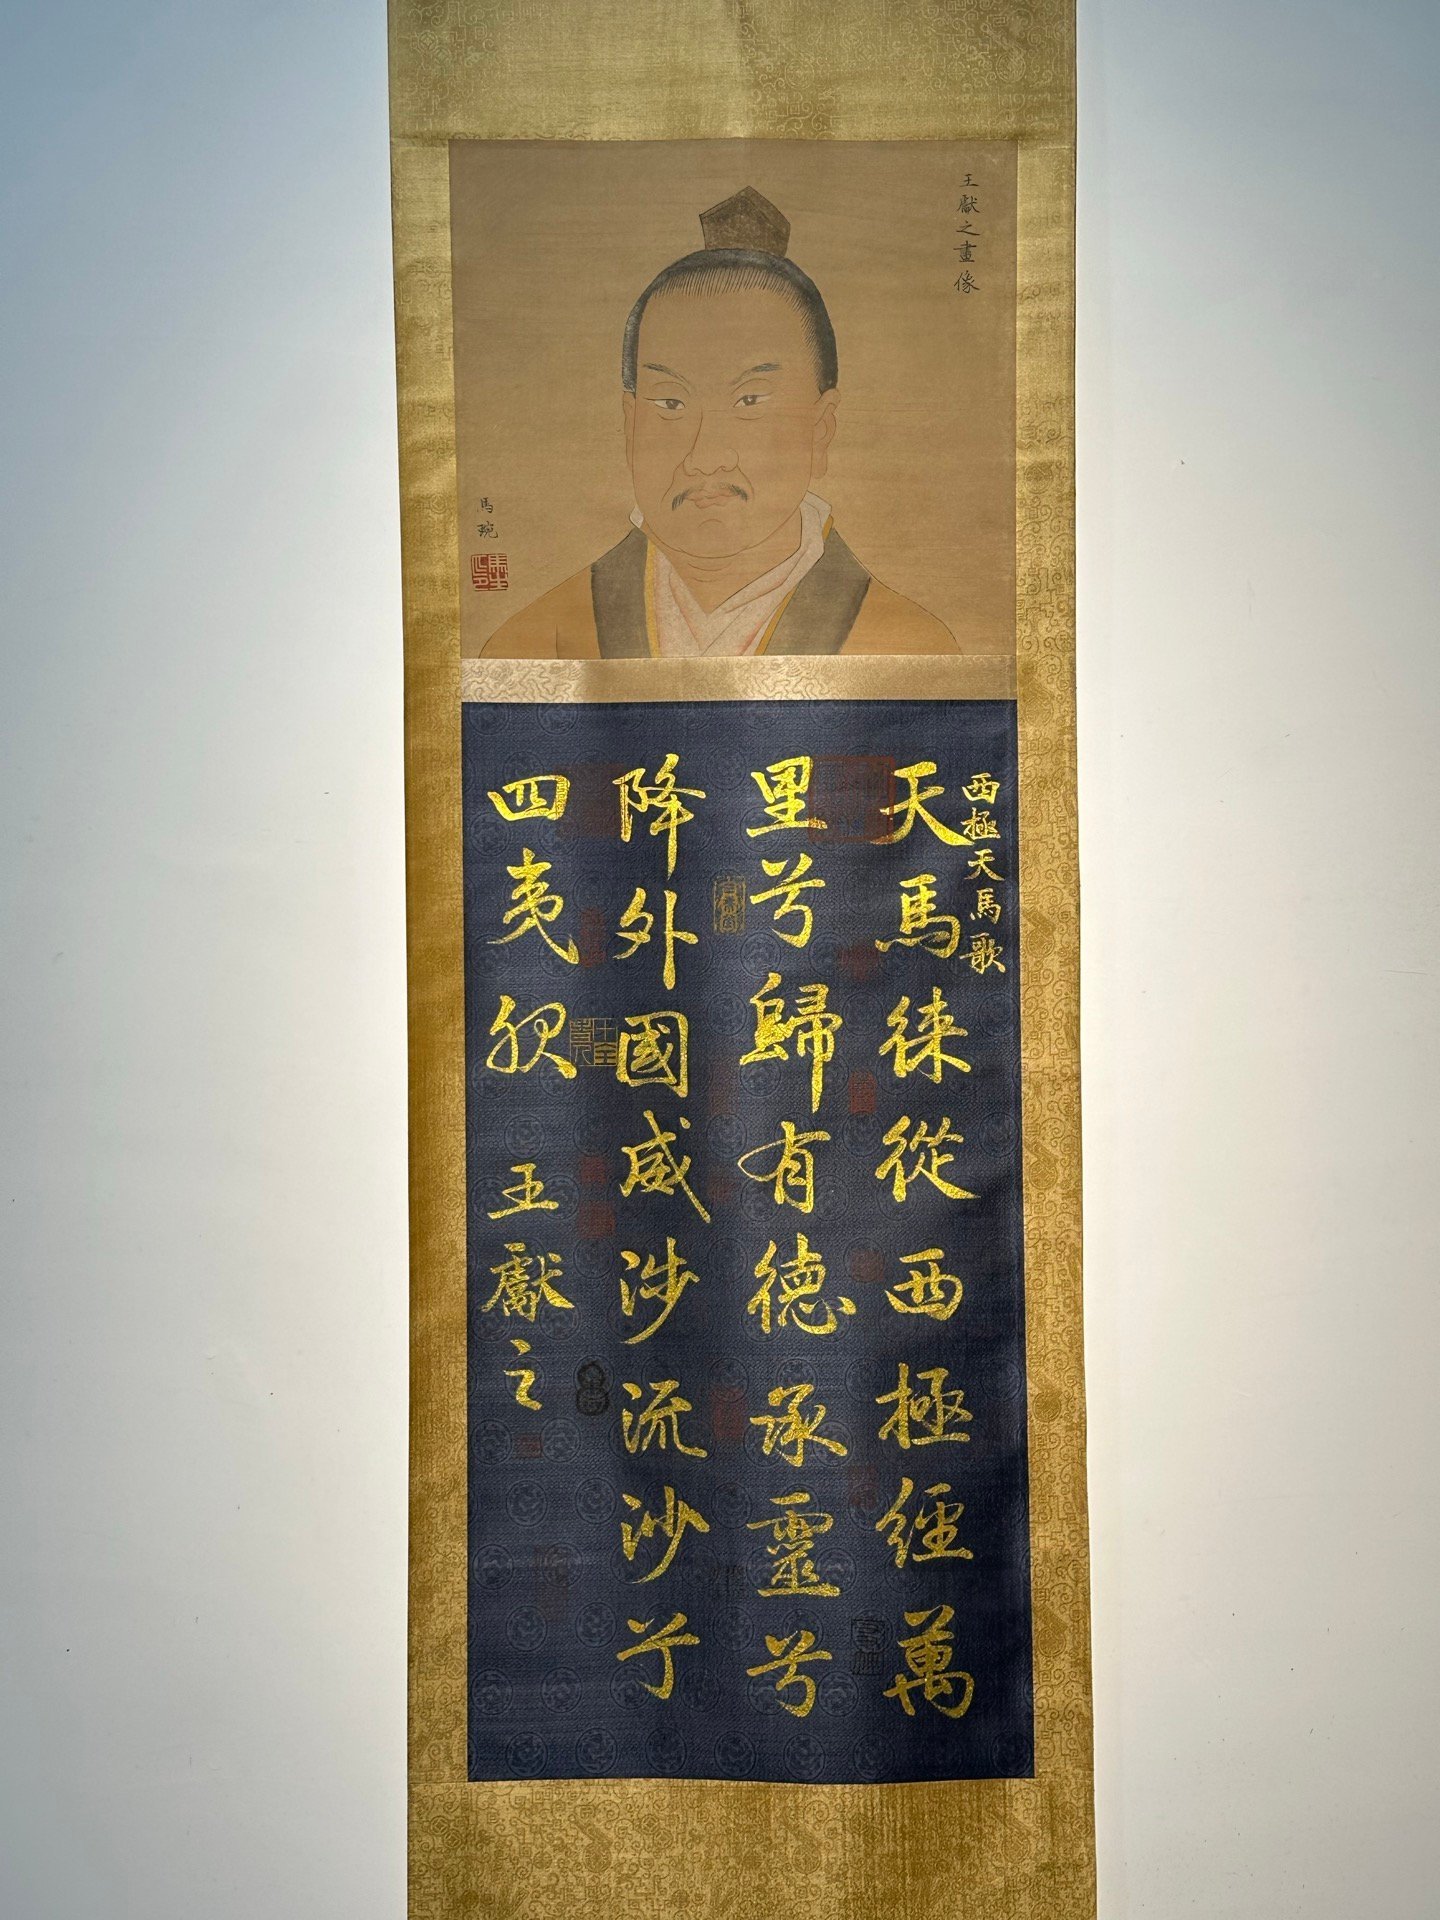 王獻之畫像
馬琬
西極天馬歌
天馬徠從西極經萬
里兮歸有德承靈兮
降外國威涉流沙兮
四夷服 王獻之
十全